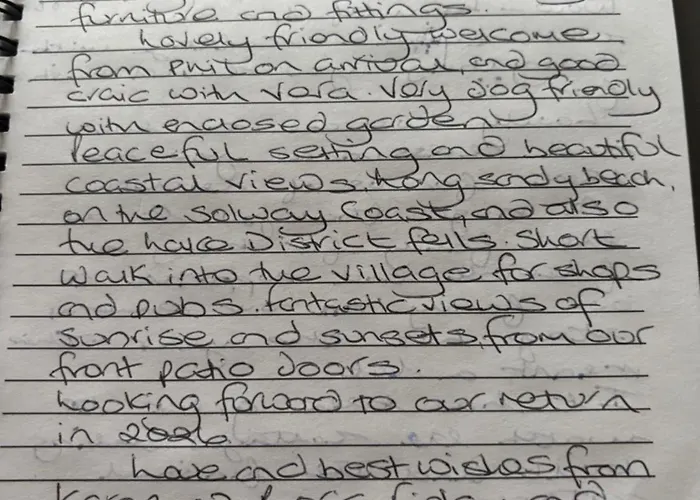 furniture and fittings.
Lovely friendly welcome
from Phil on arrival, and good
craic with Vera. Very dog friendly
with enclosed garden.
Peaceful setting and beautiful
coastal views. Long sandy beach,
on the Solway Coast, and also
the Lake District fells. Short
walk into the village for shops
and pubs. Fantastic views of
sunrise and sunsets from our
front patio doors.
Looking forward to our return
in 2026
Love and best wishes from